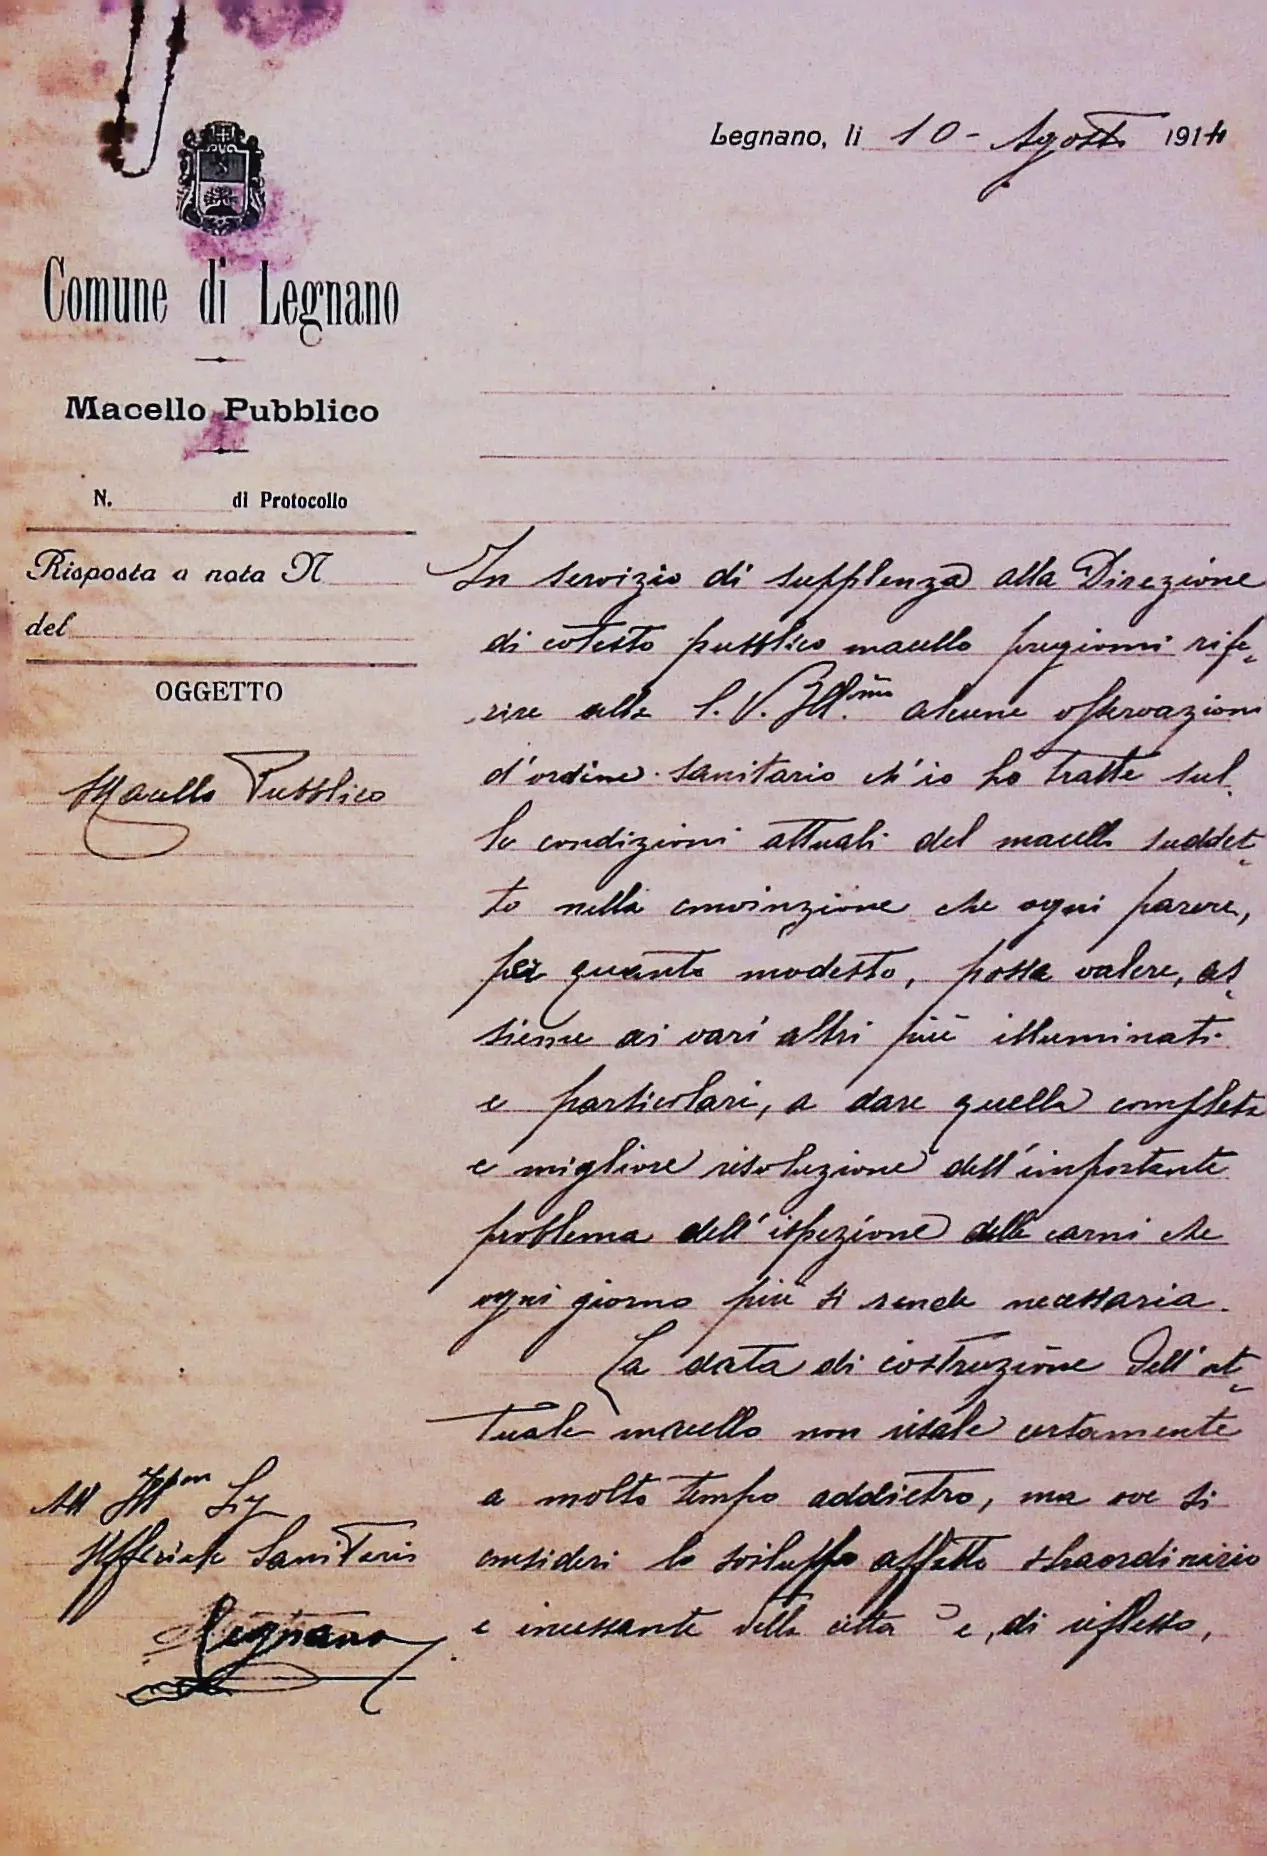 Legnano, li 10 - Agosto 1914
Comune di Legnano
Macello Pubblico
N. di Protocollo
Risposta a nota N
del
OGGETTO
Macello Pubblico
In servizio di supplenza alla Direzione
di cotesto pubblico macello pregiomi rife-
rire alla S. V. Ill.ma alcune osservazioni
d'ordine sanitario ch'io ho tratte sul-
le condizioni attuali del macello suddet-
to nella convinzione che ogni parere,
per quanto modesto, possa valere, as-
sieme ai vari altri più illuminati
e particolari, a dare quella completa
e migliore risoluzione dell'importante
problema dell'ispezione delle carni che
ogni giorno più si rende necessaria.
La data di costruzione dell'at-
tuale macello non risale certamente
a molto tempo addietro, ma ove si
consideri lo sviluppo affatto straordinario
e incessante della città e, di riflesso,
All' Ill Sig
Ufficiale Sanitario
Legnano